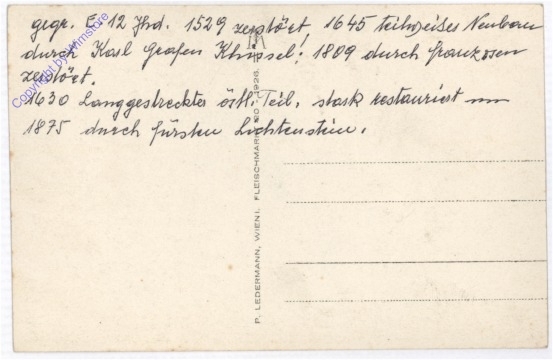 gegr. E. 12 Jhd. 1529 zerstört, 1645 teilweises Neubau
durch Karl Grafen Khissel! 1809 durch Franzosen
zerstört.
1630 Langgestreckter östl. Teil, stark restauriert um
1875 durch Fürsten Lichtenstein.
P. LEDERMANN, WIEN I. FLEISCHMARKT 20. 1926.
Copyright by Wimstore